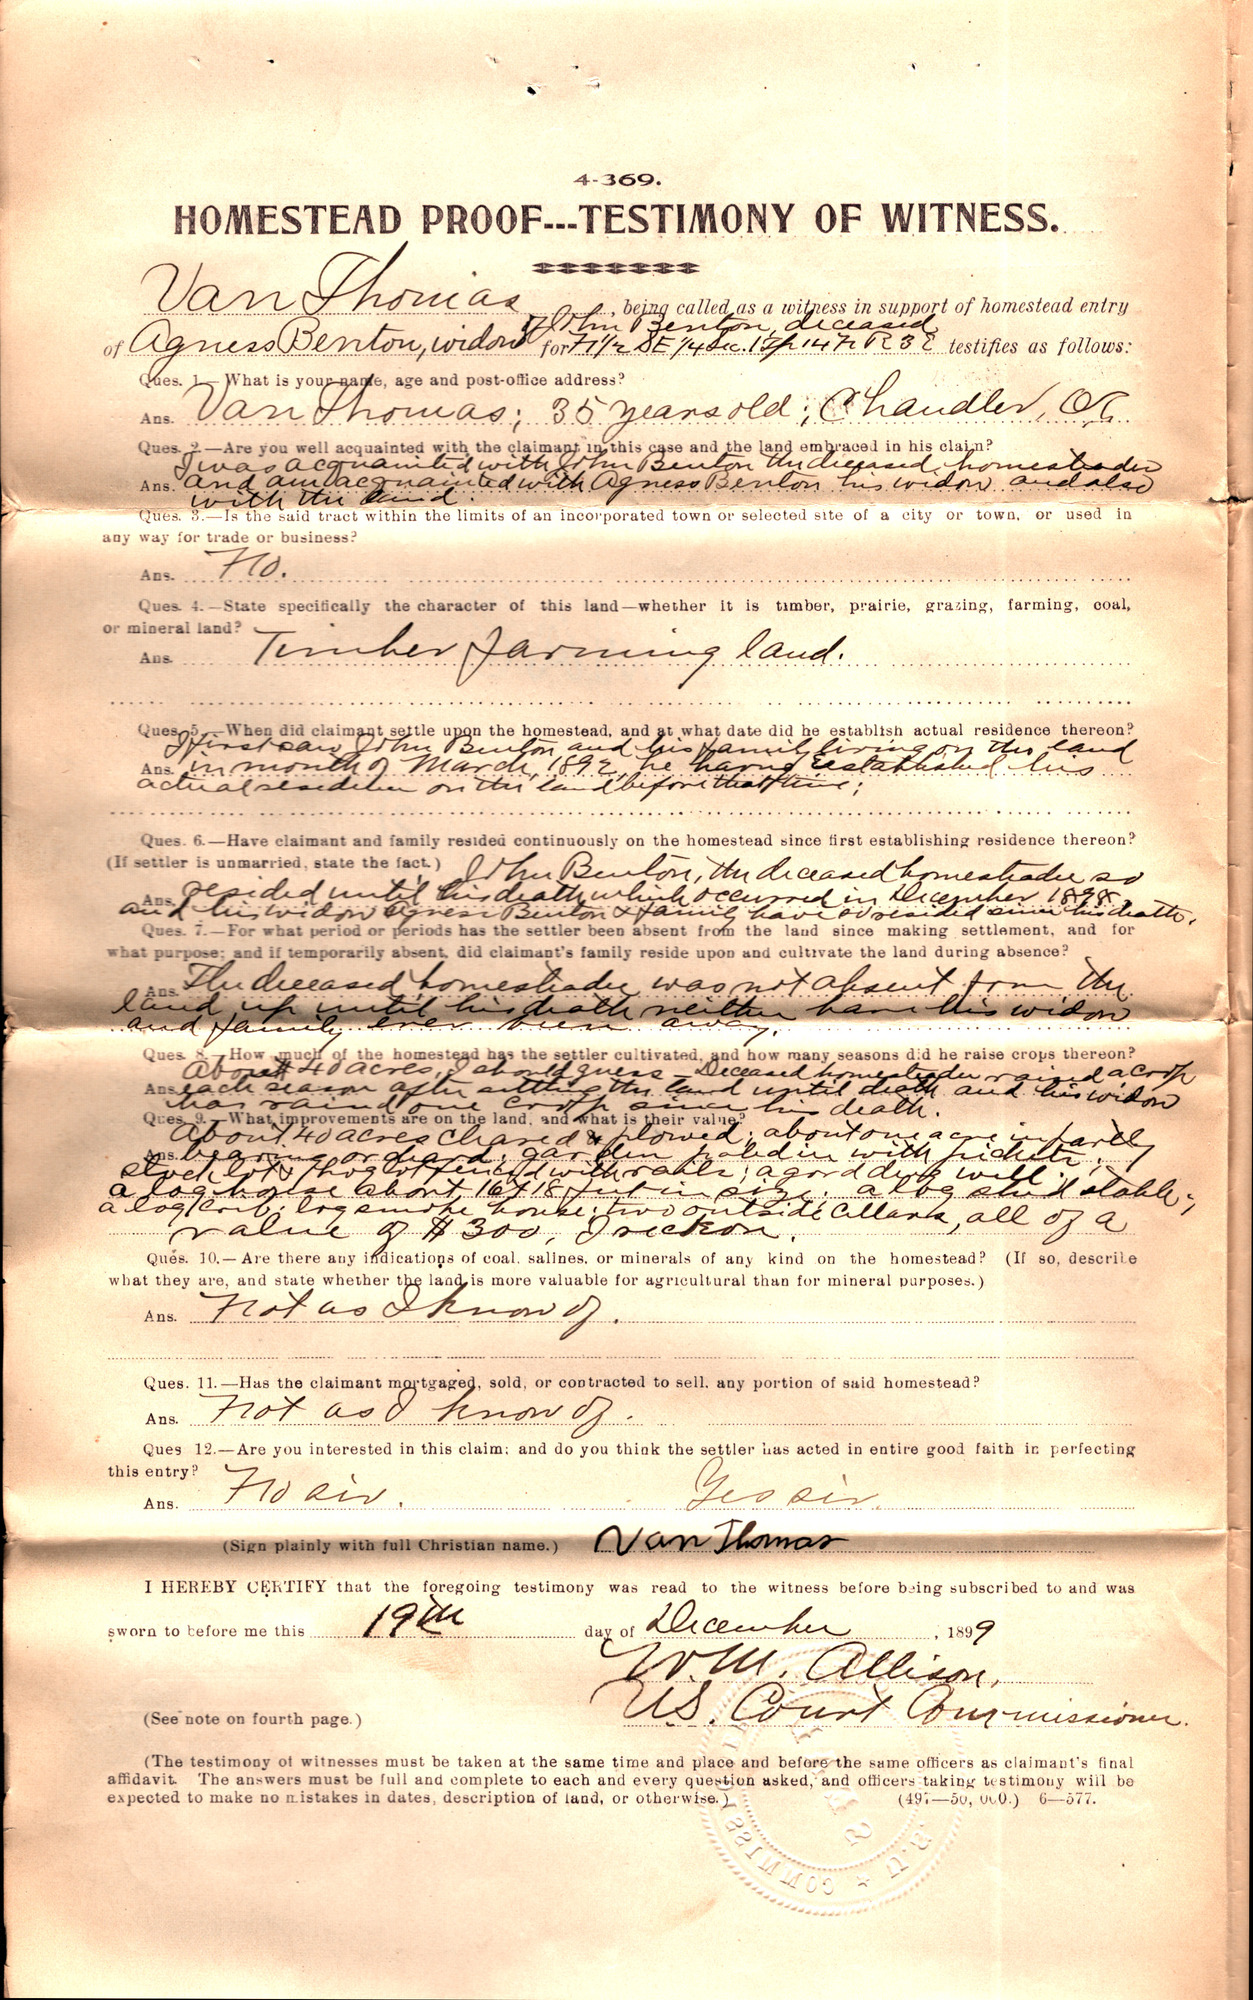 4-369.
HOMESTEAD PROOF---TESTIMONY OF WITNESS.
Van Thomas, being called as a witness in support of homestead entry
of John Benton, deceased,
of Agness Benton, widow for N 1/2 SE 1/4 Sec. 1 Tp 14 N R 3 E testifies as follows:
Ques. 1.—What is your name, age and post-office address?
Ans. Van Thomas; 35 years old; Chandler, O.T.
Ques. 2.—Are you well acquainted with the claimant in this case and the land embraced in his claim?
I was acquainted with John Benton the deceased homesteader
Ans. and am acquainted with Agness Benton his widow and also
with the land.
Ques. 3.—Is the said tract within the limits of an incorporated town or selected site of a city or town, or used in
any way for trade or business?
Ans. No.
Ques. 4.—State specifically the character of this land—whether it is timber, prairie, grazing, farming, coal,
or mineral land?
Ans. Timber farming land.
Ques. 5.—When did claimant settle upon the homestead, and at what date did he establish actual residence thereon?
I first saw John Benton and his family living on the land
Ans. in month of March, 1892, he having established his
actual residence on the land before that time;
Ques. 6.—Have claimant and family resided continuously on the homestead since first establishing residence thereon?
(If settler is unmarried, state the fact.) John Benton, the deceased homesteader so
Ans. resided until his death which occurred in December 1898
and his widow Agness Benton & family have so resided since his death.
Ques. 7.—For what period or periods has the settler been absent from the land since making settlement, and for
what purpose; and if temporarily absent, did claimant's family reside upon and cultivate the land during absence?
Ans. The deceased homesteader was not absent from the
land up until his death neither have his widow
and family ever been away.
Ques. 8.—How much of the homestead has the settler cultivated, and how many seasons did he raise crops thereon?
About 40 acres, I should guess – Deceased homesteader raised a crop
Ans. each season after settling the land until death and his widow
has raised one crop since his death.
Ques. 9.—What improvements are on the land, and what is their value?
About 40 acres cleared & plowed; about one acre in partly
Ans. bearing orchard; garden paled in with pickets;
stock lot & hog lot fenced with rails; a good dug well;
a log house about 16 x 18 feet in size; a log shed stable;
a log crib; log smoke house; two outside cellars, all of a
value of $300, I reckon.
Ques. 10.—Are there any indications of coal, salines, or minerals of any kind on the homestead? (If so, describe
what they are, and state whether the land is more valuable for agricultural than for mineral purposes.)
Ans. Not as I know of.
Ques. 11.—Has the claimant mortgaged, sold, or contracted to sell, any portion of said homestead?
Ans. Not as I know of.
Ques 12.—Are you interested in this claim; and do you think the settler has acted in entire good faith in perfecting
this entry?
Ans. No sir. Yes sir.
(Sign plainly with full Christian name.) Van Thomas
I HEREBY CERTIFY that the foregoing testimony was read to the witness before being subscribed to and was
sworn to before me this 19th day of December, 1899
W. M. Allison,
U.S. Court Commissioner.
(See note on fourth page.)
(The testimony of witnesses must be taken at the same time and place and before the same officers as claimant's final
affidavit. The answers must be full and complete to each and every question asked, and officers taking testimony will be
expected to make no mistakes in dates, description of land, or otherwise.) (497—50, 000.) 6—577.